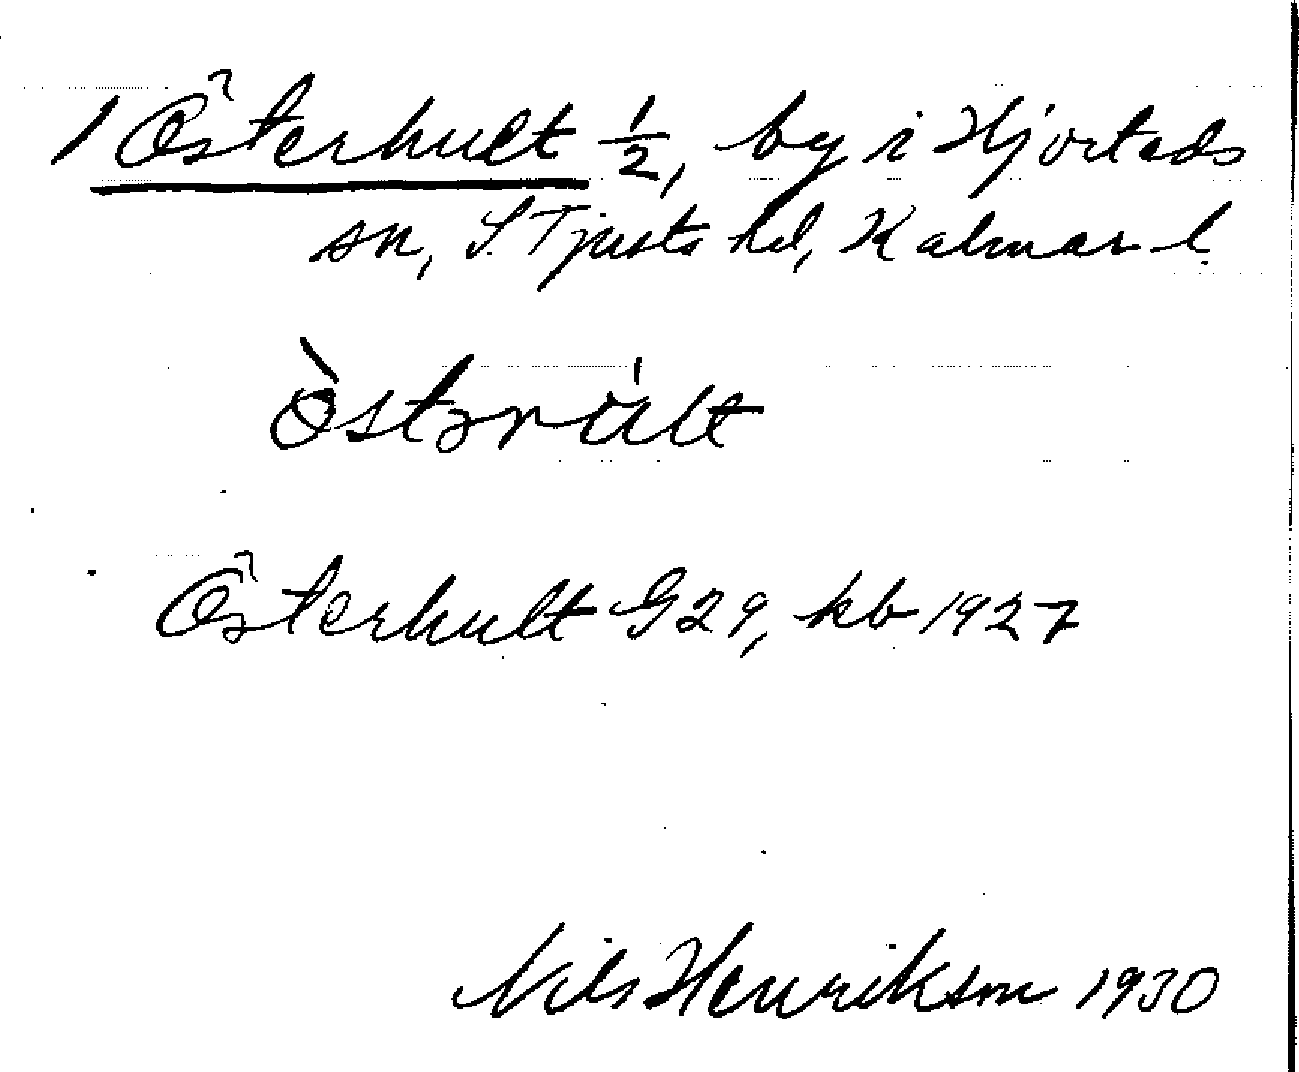 1 Österhult ½, by i Hjorteds
sn, S. Tjusts hd, Kalmar l.
òstərúlt
Österhult G29, kb 1927
Nils Henrikson 1930